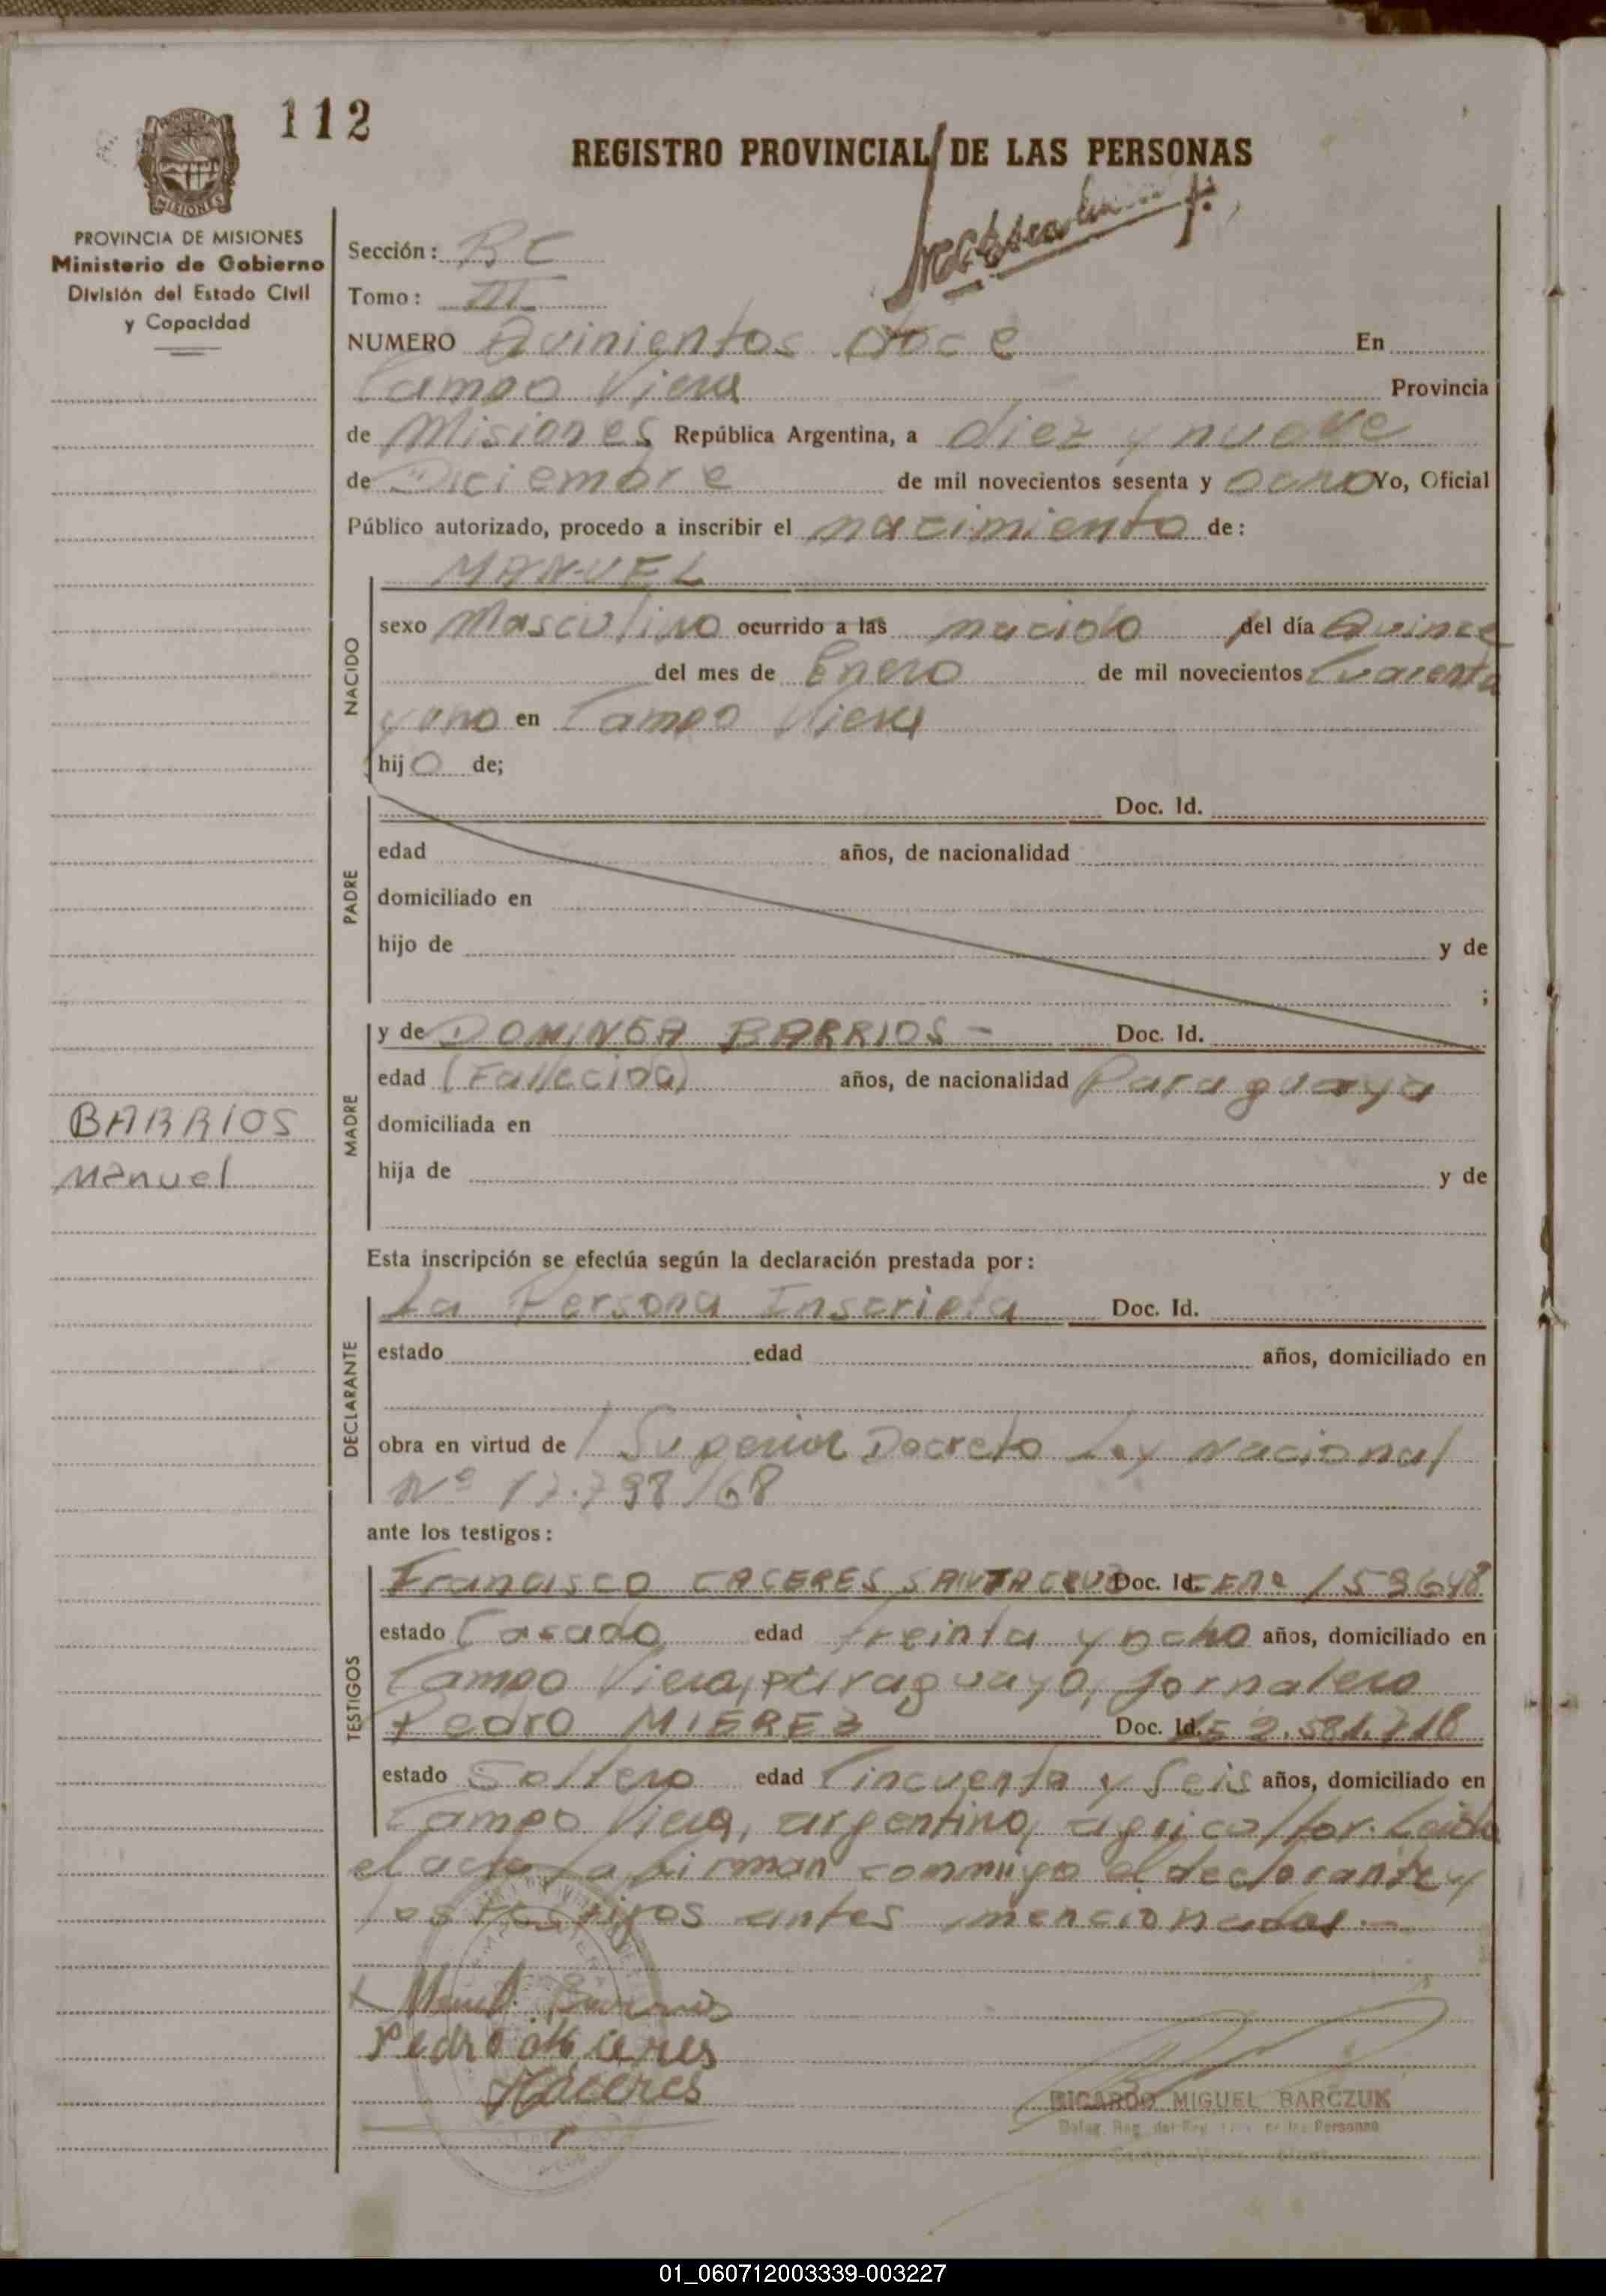 112
REGISTRO PROVINCIAL DE LAS PERSONAS
MISIONES
PROVINCIA DE MISIONES
Ministerio de Gobierno
División del Estado Civil
y Capacidad
Sección: BC
Tomo: III
NUMERO Quinientos doce En
Campo Viera Provincia
de Misiones República Argentina, a diez y nueve
de Diciembre de mil novecientos sesenta y ocho Yo, Oficial
Público autorizado, procedo a inscribir el nacimiento de:
MANUEL
NACIDO
sexo Masculino ocurrido a las nacido del día Quince
del mes de Enero de mil novecientos Cuarenta
y uno en Campo Viera
hijo de;
PADRE
Doc. Id.
edad años, de nacionalidad
domiciliado en
hijo de y de
;
MADRE
y de DOMINGA BARRIOS - Doc. Id.
edad (Fallecida) años, de nacionalidad Paraguaya
domiciliada en
hija de y de
BARRIOS
Manuel
Esta inscripción se efectúa según la declaración prestada por:
DECLARANTE
La Persona Inscripta Doc. Id.
estado edad años, domiciliado en
obra en virtud de / Superior Decreto Ley Nacional
Nº 17.798/68
ante los testigos:
TESTIGOS
Francisco CACERES SANTACRUZ Doc. Id. 159648
estado Casado edad treinta y ocho años, domiciliado en
Campo Viera, paraguayo, jornalero
Pedro MIEREZ Doc. Id. 2.581.718
estado Soltero edad Cincuenta y Seis años, domiciliado en
Campo Viera, argentino, agricultor. Leida
el acta, la firman conmigo el declarante y
los testigos antes mencionados.-
Manuel Barrios
Pedro Mieres
Caceres
RICARDO MIGUEL BARCZUK
01_060712003339-003227